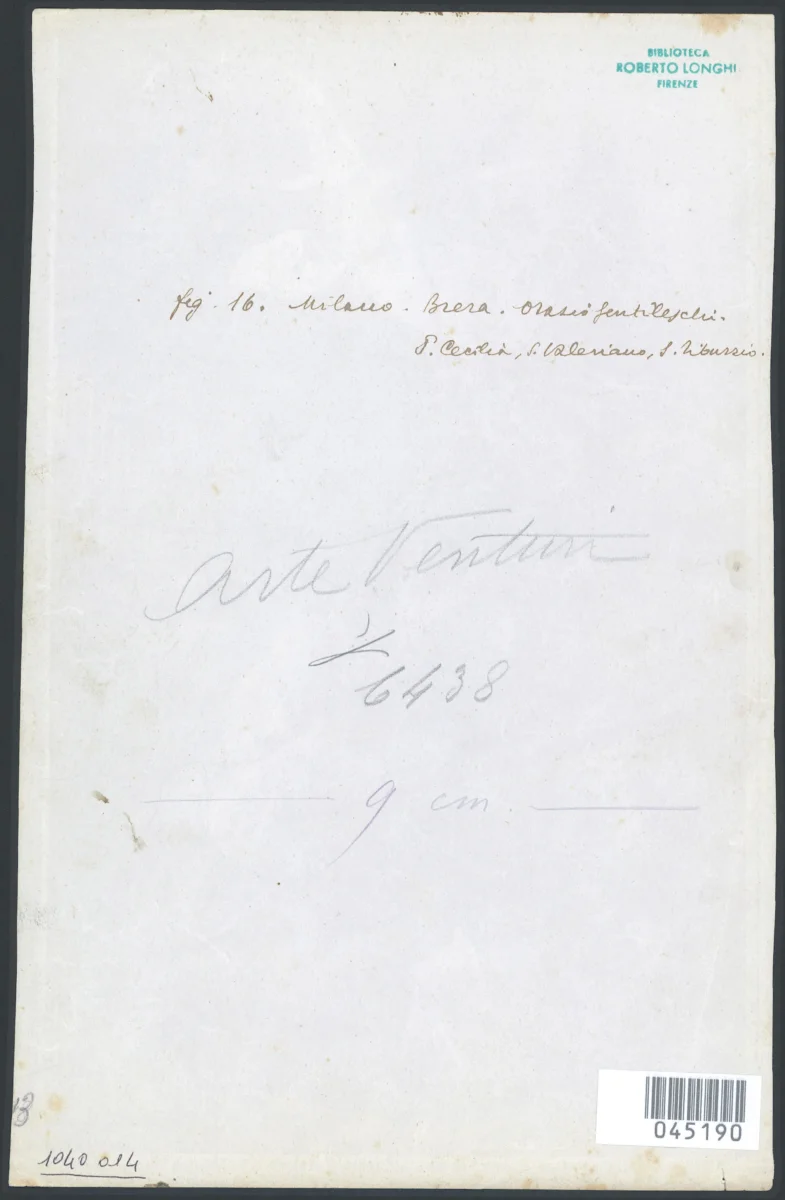 BIBLIOTECA
ROBERTO LONGHI
FIRENZE
fig. 16. Milano. Brera. Orazio Gentileschi.
S. Cecilia, S. Valeriano, S. Tiburzio.
Arte Venturi
6438
9 cm.
045190
13
1040 014